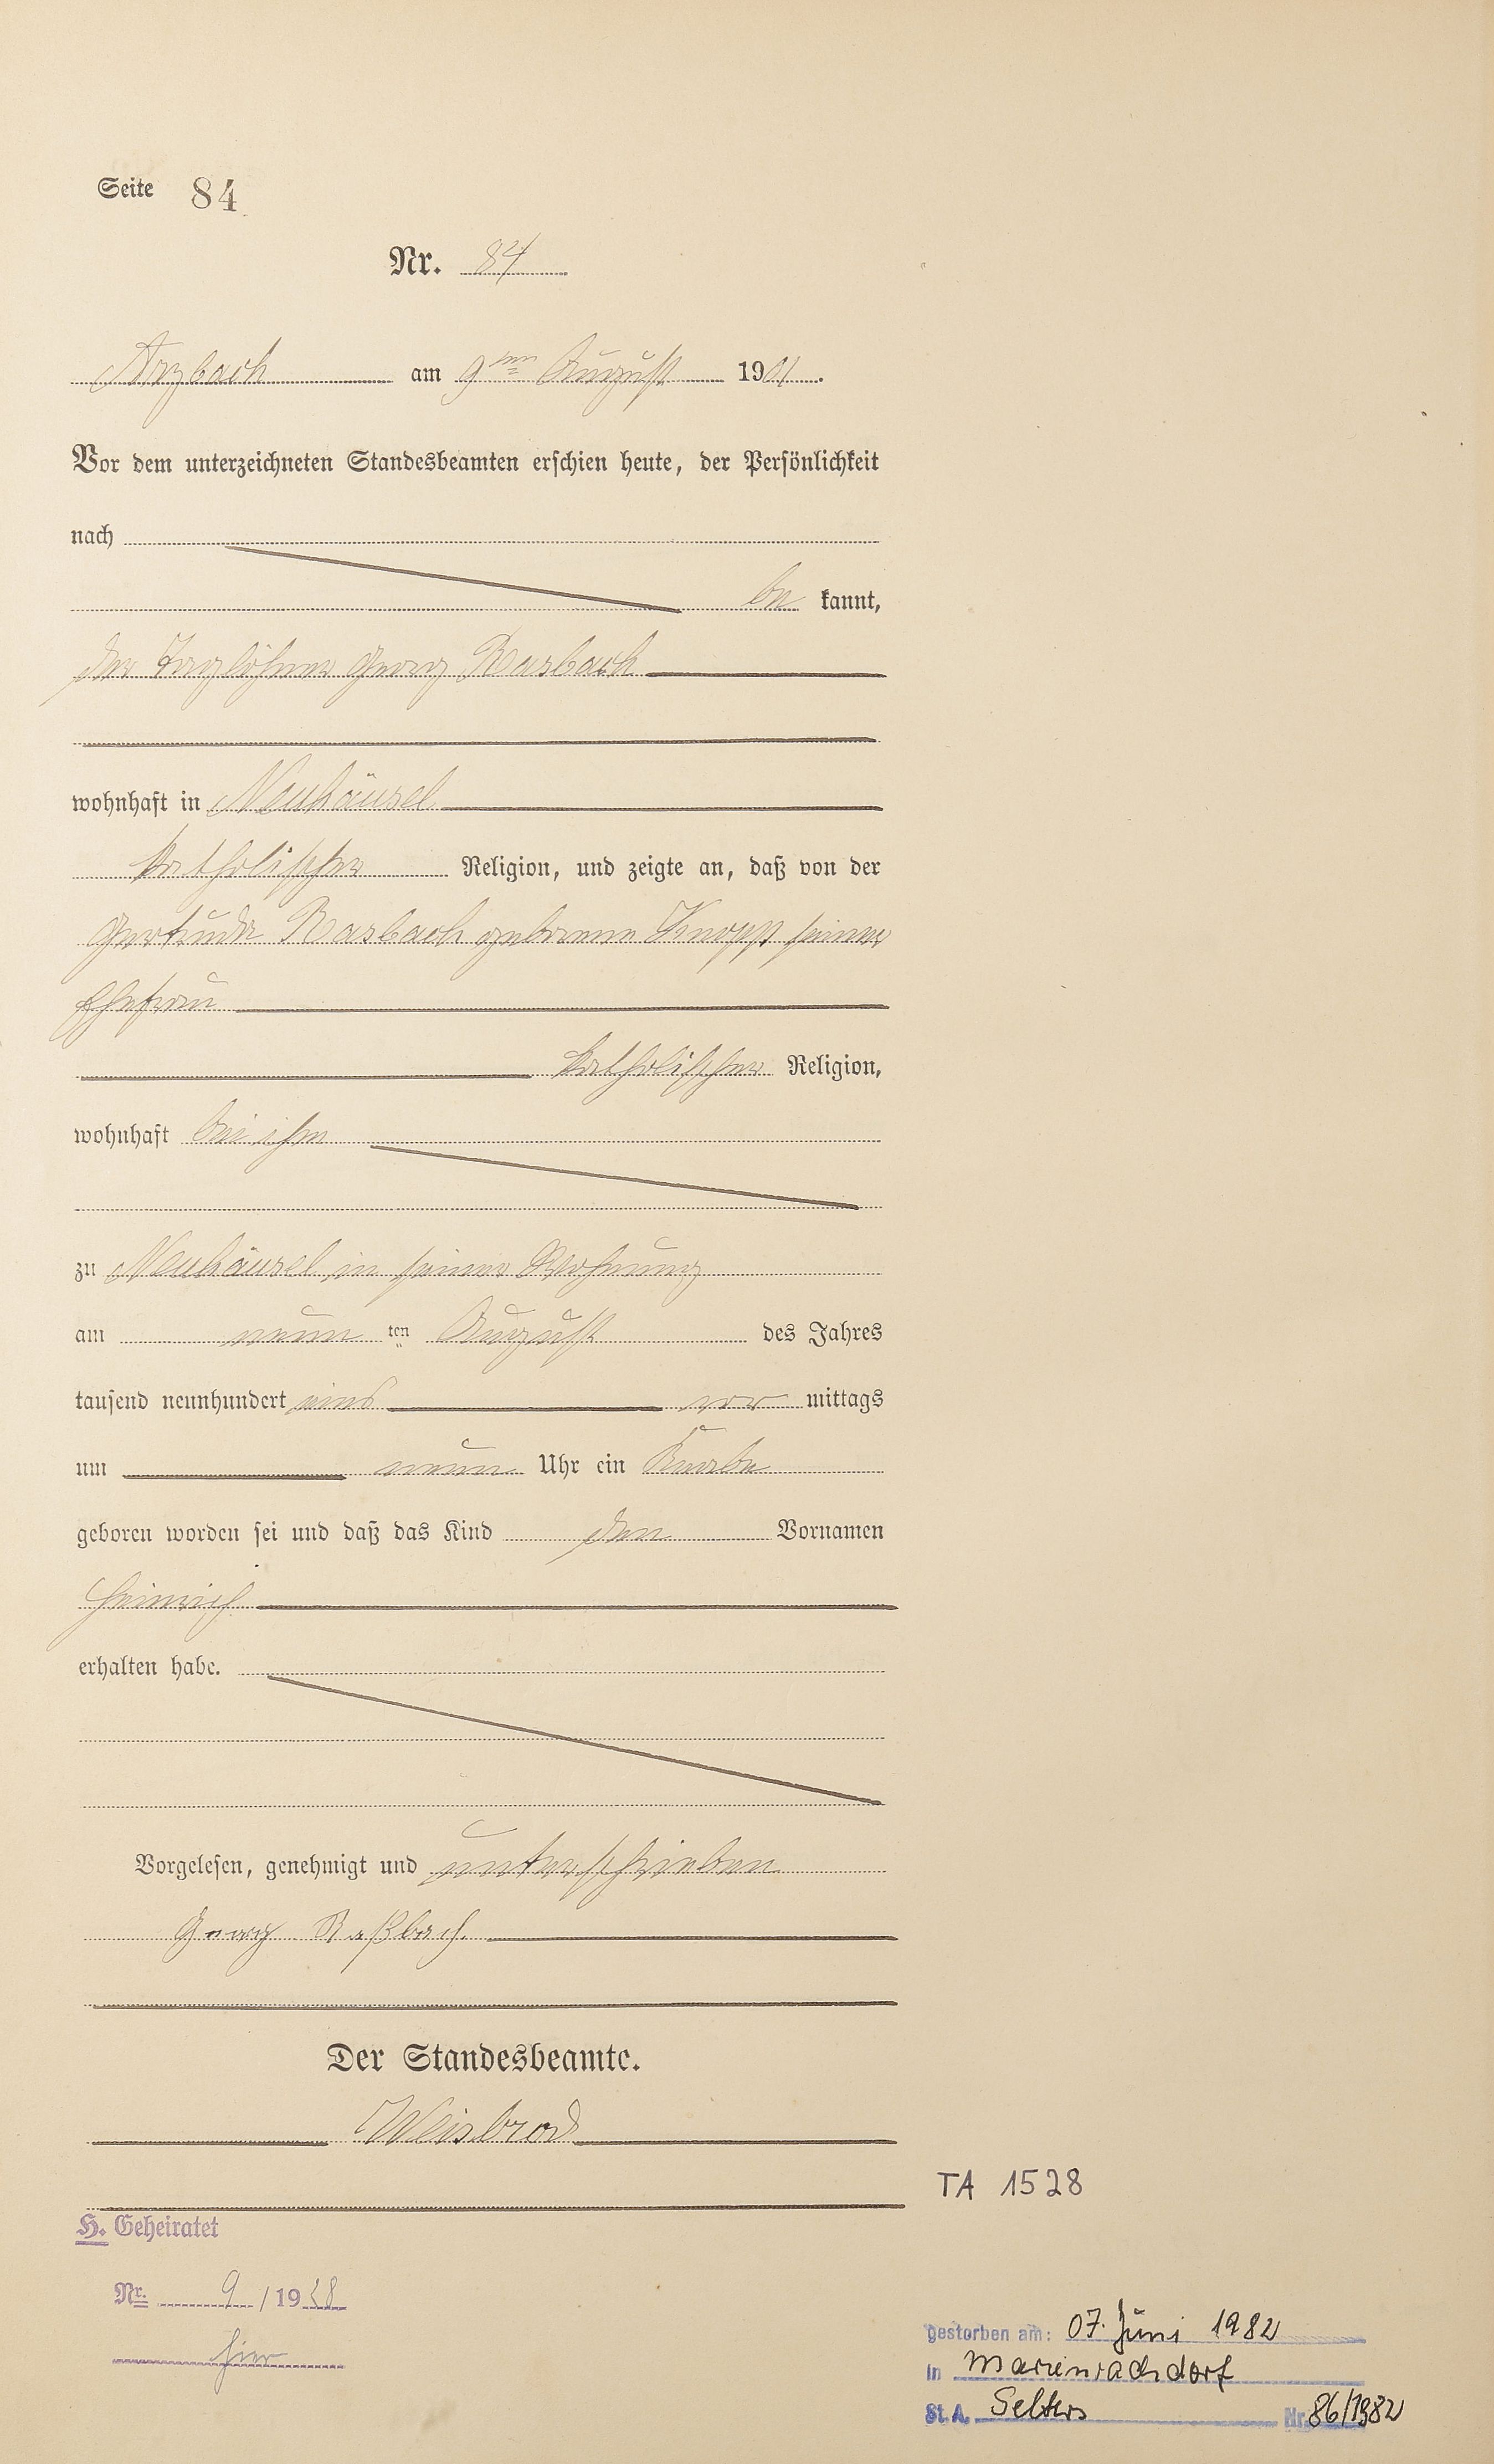 Seite 84
Nr. 84
Arzbach am 9ten August 1901.
Vor dem unterzeichneten Standesbeamten erschien heute, der Persönlichkeit
nach
be kannt,
der Taglöhner Georg Rasbach
wohnhaft in Neuhäusel
katholischer Religion, und zeigte an, daß von der
Gertrude Rasbach geborene Knopp seiner
Ehefrau
katholischer Religion,
wohnhaft bei ihm
zu Neuhäusel in seiner Wohnung
am neun ten August des Jahres
tausend neunhundert eins vor mittags
um neun Uhr ein Knabe
geboren worden sei und daß das Kind den Vornamen
Heinrich
erhalten habe.
Vorgelesen, genehmigt und unterschrieben
Georg Raßbach.
Der Standesbeamte.
Weisbrod
TA 1528
H. Geheiratet
Nr. 9/1928
hier
gestorben am: 07. Juni 1982
in Marienrachdorf
St.A. Selters Nr. 86/1982